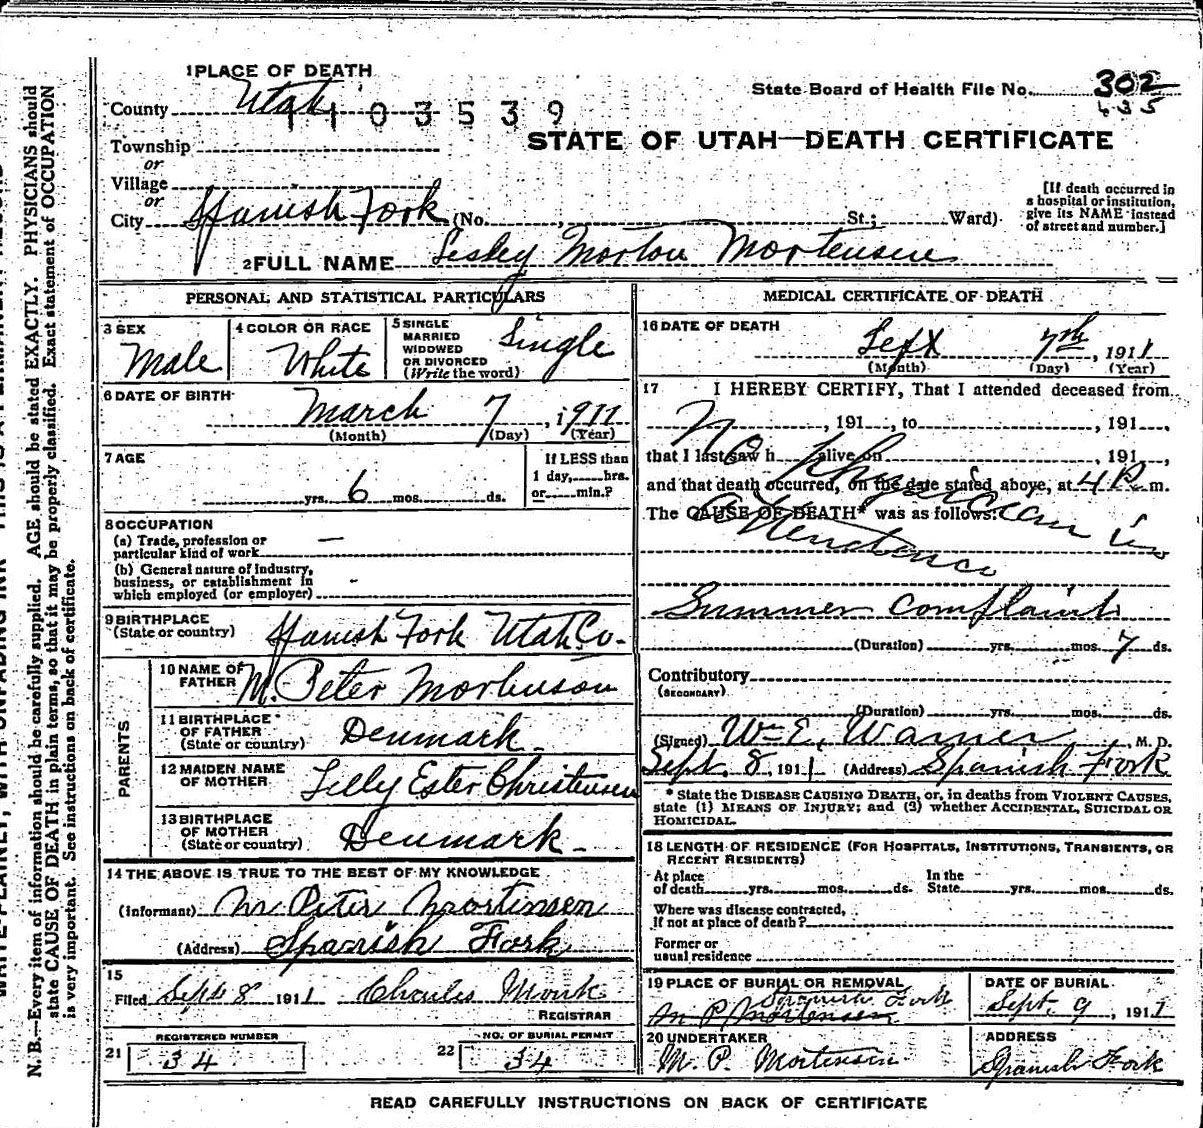 1 PLACE OF DEATH
County Utah
1103539
State Board of Health File No. 302
635
STATE OF UTAH—DEATH CERTIFICATE
Township
or
Village
or
City Spanish Fork (No. St.; Ward).
[If death occurred in a hospital or institution, give its NAME instead of street and number.]
2 FULL NAME Lesley Morton Mortensen
PERSONAL AND STATISTICAL PARTICULARS
3 SEX Male
4 COLOR OR RACE White
5 SINGLE MARRIED WIDOWED OR DIVORCED (Write the word) Single
6 DATE OF BIRTH
March 7, 1911
(Month) (Day) (Year)
7 AGE
yrs. 6 mos. ds.
If LESS than 1 day, hrs. or min.?
8 OCCUPATION
(a) Trade, profession or particular kind of work —
(b) General nature of industry, business, or establishment in which employed (or employer) -
9 BIRTHPLACE (State or country) Spanish Fork Utah Co.
PARENTS
10 NAME OF FATHER M. Peter Mortenson
11 BIRTHPLACE OF FATHER (State or country) Denmark
12 MAIDEN NAME OF MOTHER Lilly Ester Christensen
13 BIRTHPLACE OF MOTHER (State or country) Denmark
14 THE ABOVE IS TRUE TO THE BEST OF MY KNOWLEDGE
(Informant) M Peter Mortinsen
(Address) Spanish Fork
15
Filed Sept 8 1911 Charles Monk
REGISTRAR
REGISTERED NUMBER
21 34
NO. OF BURIAL PERMIT
22 34
MEDICAL CERTIFICATE OF DEATH
16 DATE OF DEATH
Sept 7th, 1911
(Month) (Day) (Year)
17 I HEREBY CERTIFY, That I attended deceased from
, 191 , to , 191 ,
that I last saw h alive on , 191 ,
and that death occurred, on the date stated above, at 4 P. m.
The CAUSE OF DEATH* was as follows:
No Physician in
Attendance
Summer Complaint
(Duration) yrs. mos. 7 ds.
Contributory
(SECONDARY)
(Duration) yrs. mos. ds.
(Signed) Wm E. Warner, M. D.
Sept. 8, 1911 (Address) Spanish Fork
* State the DISEASE CAUSING DEATH, or, in deaths from VIOLENT CAUSES,
state (1) MEANS OF INJURY; and (2) whether ACCIDENTAL, SUICIDAL OR
HOMICIDAL.
18 LENGTH OF RESIDENCE (FOR HOSPITALS, INSTITUTIONS, TRANSIENTS, OR
RECENT RESIDENTS)
At place of death yrs. mos. ds. In the State yrs. mos. ds.
Where was disease contracted,
If not at place of death?
Former or
usual residence
19 PLACE OF BURIAL OR REMOVAL
Spanish Fork
M P Mortensen
DATE OF BURIAL
Sept. 9, 1911
20 UNDERTAKER
M. P. Mortensen
ADDRESS
Spanish Fork
READ CAREFULLY INSTRUCTIONS ON BACK OF CERTIFICATE
N. B.—Every item of information should be carefully supplied. AGE should be stated EXACTLY. PHYSICIANS should
state CAUSE OF DEATH in plain terms, so that it may be properly classified. Exact statement of OCCUPATION
is very important. See instructions on back of certificate.